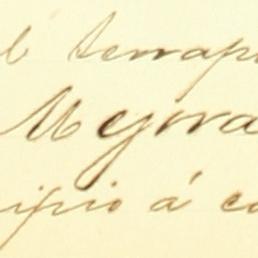 l terrap
Mejora
ipio á co